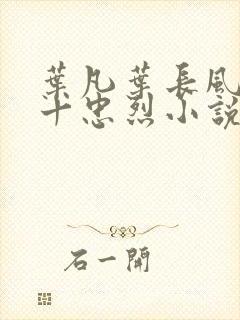 葉凡葉長風
十忠烈小說
石一開